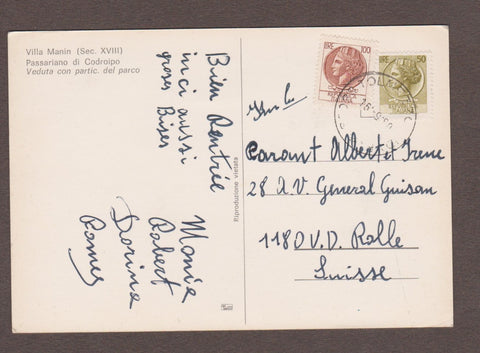 Villa Manin (Sec. XVIII)
Passariano di Codroipo
Veduta con partic. del parco
Bien Rentrée
inci aussi
groses Bises
Monia
Robert
Dorina
Romeo
Riproduzione vietata
LIRE 100
LIRE 50
Parant Albert et Irene
28 A.V General Guisan
1180 V.D. Rolle
Suisse